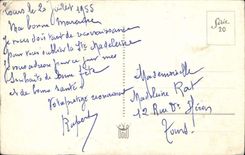 Tours le 20 juillet 1955
Ma bonne Marraine
Je vous dois tant de reconnaissance
pour vous oublier la Ste Madeleine
vous adresse pour ce jour mes
souhaits de bonne fête
et de bonne santé
Série
20
Mademoiselle
Madeleine Rat
12 Rue
Tours